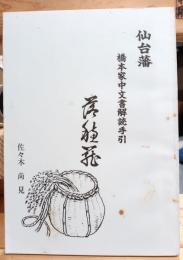 仙台藩
橋本家中文書解読手引
落穂籠
佐々木尚見